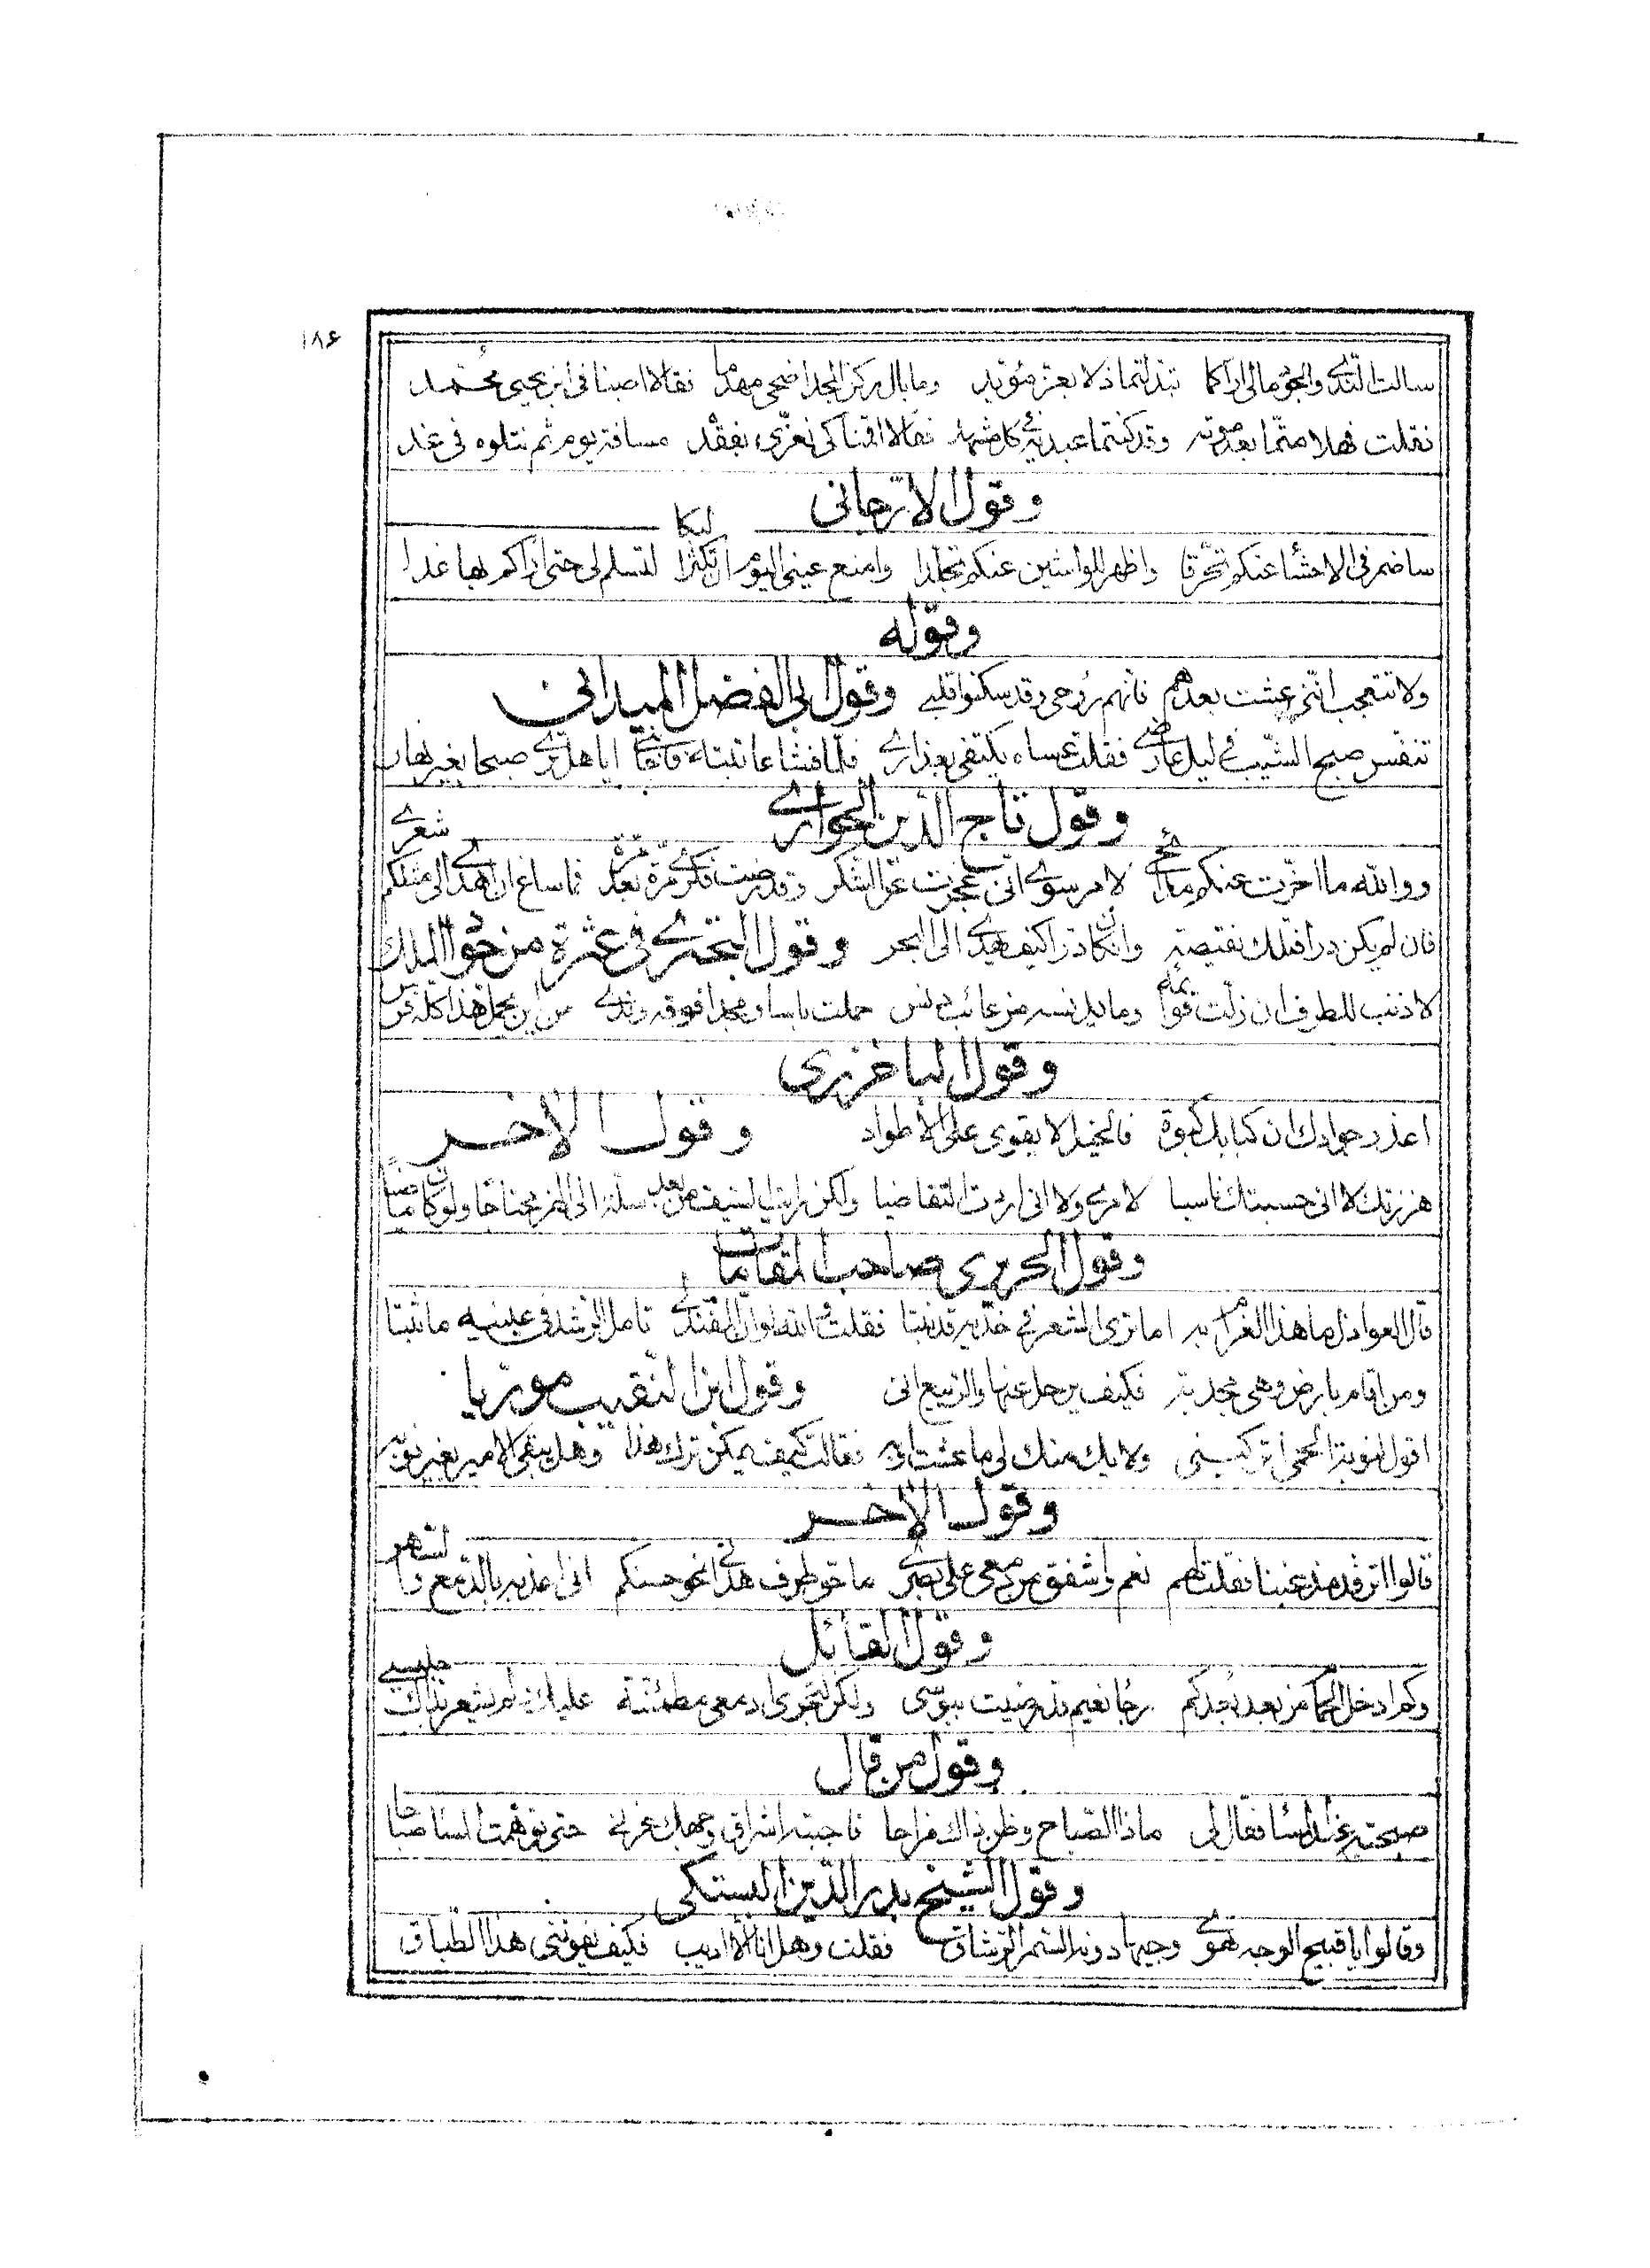 ١٨۶
سالت الندى والجود مالى اراكما تبدلتما ذلا بعز مؤبد وما بال ركن المجد اضحى مهدما فقالا اصبنا فى ابن يحيى محمد
فقلت فهلا متما بعد موته وقد كنتما عبديه فى كل مشهد فقالا اقمنا كى نعزى بفقده مسافة يوم ثم نتلوه فى غد
وقول الارجانى
ساضمر فى الاحشاء عنكم تحرقا واظهر للواشين عنكم تجلدا وامنع عينى اليوم ان تكثر البكا لتسلم لى حتى اراكم بها غدا
وقوله
ولا تتعجب اننى عشت بعدهم فانهم روحى وقد سكنوا قلبى وقول ابى الفضل الميدانى
تنفس صبح الشيب فى ليل عارضى فقلت عساه يكتفى بعذارى فلما فشا عاتبته فاجابنى ايا هل ترى صبحا بغير نهار
وقول تاج الدين الحوارى
ووالله ما اخرت عنكم مدائحى لامر سوى انى عجزت عن الشكر وقد رضت فكرى مرة بعد مرة فما ساغ ان اهدى الى مثلكم شعرى
فان لم يكن درا فتلك نقيصة وان كان درا كيف يهدى الى البحر وقول البحترى فى عثرة من جواد الملك
لا ذنب للطرف ان زلت قوائمه وما يدنسه من عائب دنس حملت باسا ومجدا فوقه وندى من اين يحمل هذا كله فرس
وقول الباخرزى
اعذر جوادك ان كبا بك كبوة فالخيل لا يقوى على الاطواد وقول الاخر
هززتك لا انى حسبتك ناسيا لامرى ولا انى اردت التقاضيا ولكن رايت السيف من بعد سله الى الهز محتاجا ولو كان ماضيا
وقول الحريرى صاحب المقامات
قال العواذل ما هذا الغرام به اما ترى الشعر فى خديه قد نبتا فقلت والله لو ان المفند لى تامل الرشد فى عينيه ما ثبتا
ومن اقام بارض وهى مجدبة فكيف يرحل عنها والربيع اتى وقول ابن النقيب موريا
اقول لنوبة الحمى اتركينى ولا يك منك لى ما عشت اوبه فقالت كيف يمكن ترك هذا وهل يبقى الامير بغير نوبه
وقول الاخر
قالوا اترقد مذ غبنا فقلت لهم نعم واشفق من دمعى على بصرى ما حق طرف هدانى نحو حسنكم انى اعذبه بالدمع والسهر
وقول القائل
وكم ادخل الحمام من بعد بعدكم رجا نعيم قد رضيت ببوسى ولكن لتجرى ادمعى مطمئنة عليك ولم يشعر بذاك جليسى
وقول من قال
صبحته عند المسا فقال لى ماذا الصباح وظن ذاك مزاحا فاجبته اشراق وجهك غرنى حتى توهمت المسا صباحا
وقول الشيخ بدر الدين البستكى
وقالوا يا قبيح الوجه تهوى وجيها دونه السمر الرشاق فقلت وهل انا الا اديب فكيف يفوتنى هذا الطباق